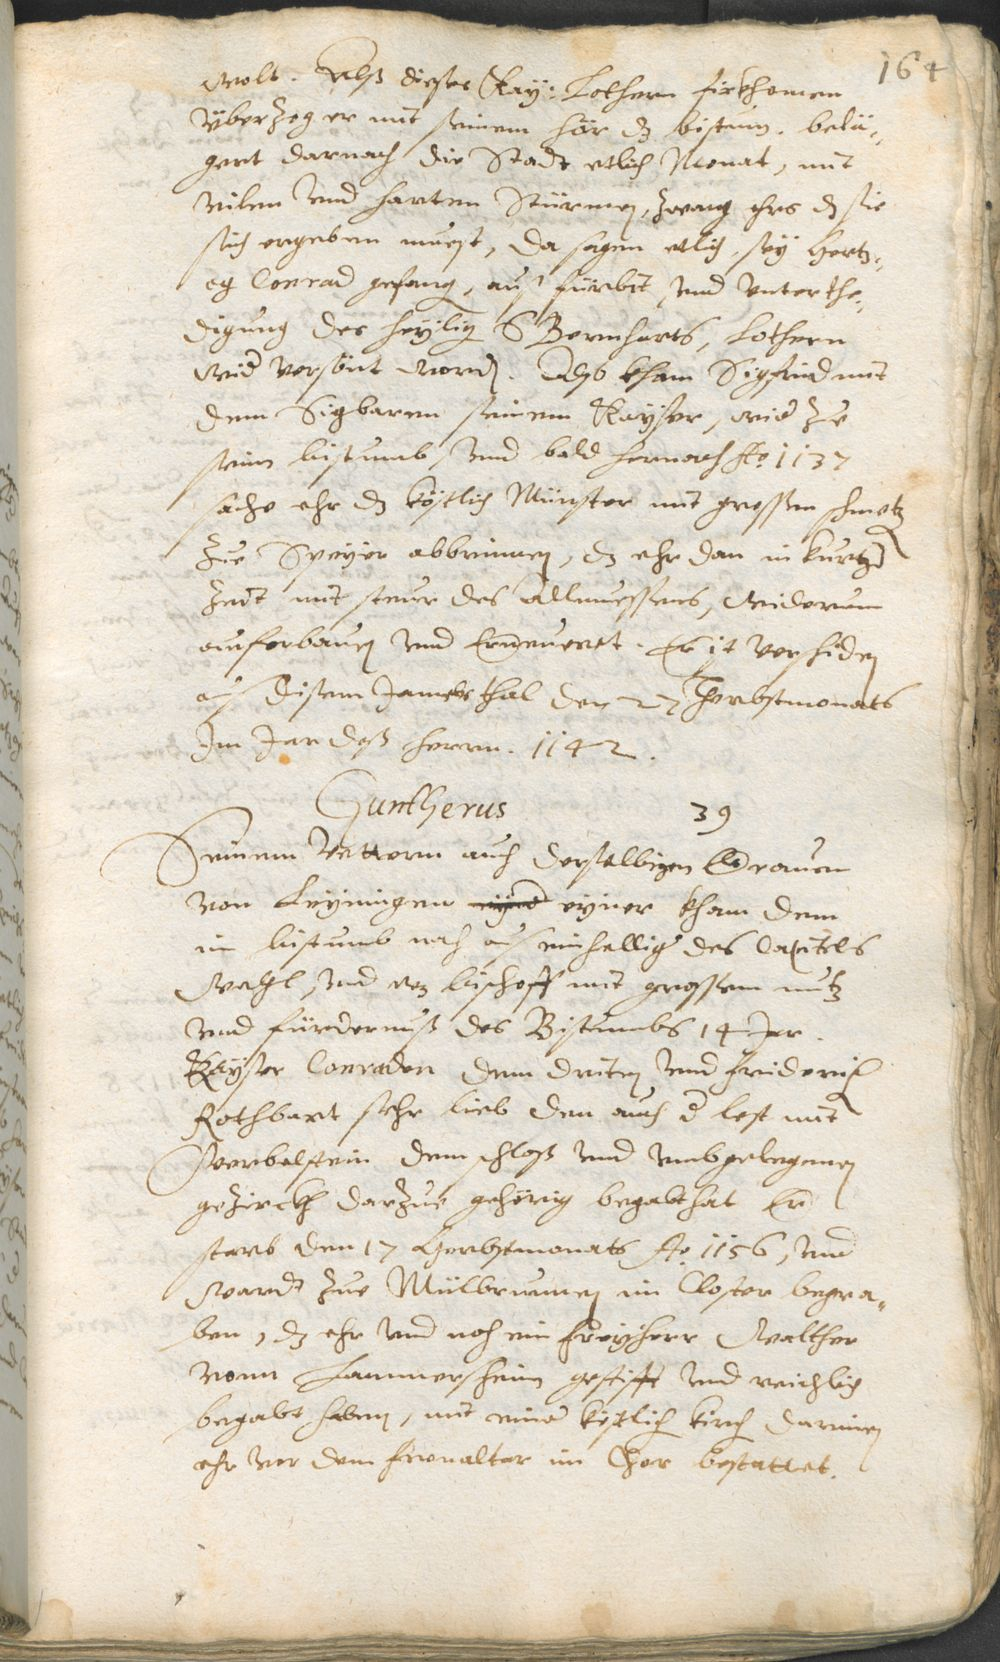 164
wolt. Alß dieses Kay: Lothern firkhomen
überzog er mit seinem hör dz bistum. belä„
gert darnach die Stadt etlich Monat, mit
vilen und harten Stürmen, zwang ehrs dz sie
sich ergeben muest, da sagen etlich, sey Hertz„
og Conrad gefang, auß fürbit, und unterthe„
digung des heylig S Bernharts, Lothern
wid versönt word. Also kham Sigfrid mit
dem Sigbaren seinem Kayser, wid zue
seim bistumb, und bald hernach Ao 1137
sache ehr dz köstlich Münster mit grossen schmertz
zue Speyer abbrinnen, dz ehr dan in kurtzer
Zeit mit steur des Allmuessens, widerum
auferbauen und erneueret. Er ist verschiden
aus disem Jamerthal den 27 Herbstmonats
Im Jar deß herrn. 1142.
Guntherus 39
Seinem Vettern auch derselbigen Graven
von Leyningen eyner kham dem
im bistumb nach aus einhellig des Capitels
Wahl, und wz bischoff mit grossem nutz
und fürdernuß des Bistumbs 14 Jar.
Kayser Conraden dem driten und friderich
Rothbart sehr lieb den auch d lest mit
dem schloß und umbgelegenen
gezirckh darzue gehörig begabt hat Er
starb den 17 Herbstmonats Ao 1156, und
wardt zue Mülbrunnen im Closter begra„
ben, dz ehr und noch ein freyherr Walther
vonn Lammersheim gestifft und reichlich
begabt haben, mit einer köstlich kirch darinen
ehr vor dem fronaltar im Chor bestattet.